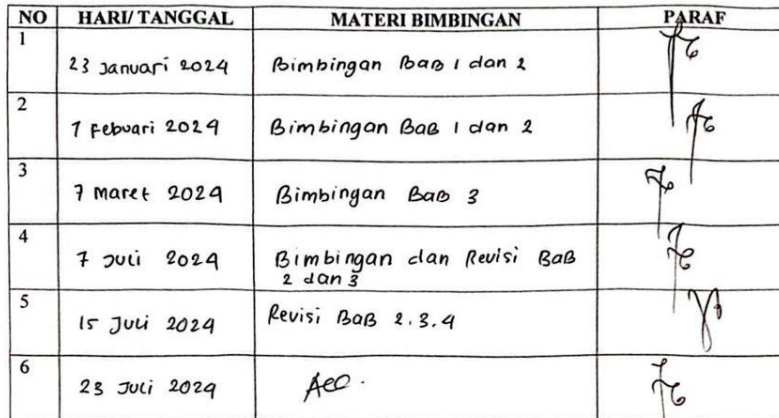 NO HARI/ TANGGAL MATERI BIMBINGAN PARAF
1 23 Januari 2024 Bimbingan Bab 1 dan 2
2 7 Febuari 2024 Bimbingan Bab 1 dan 2
3 7 Maret 2024 Bimbingan Bab 3
4 7 Juli 2024 Bimbingan dan Revisi Bab
2 dan 3
5 15 Juli 2024 Revisi Bab 2.3.4
6 23 Juli 2024 Acc.